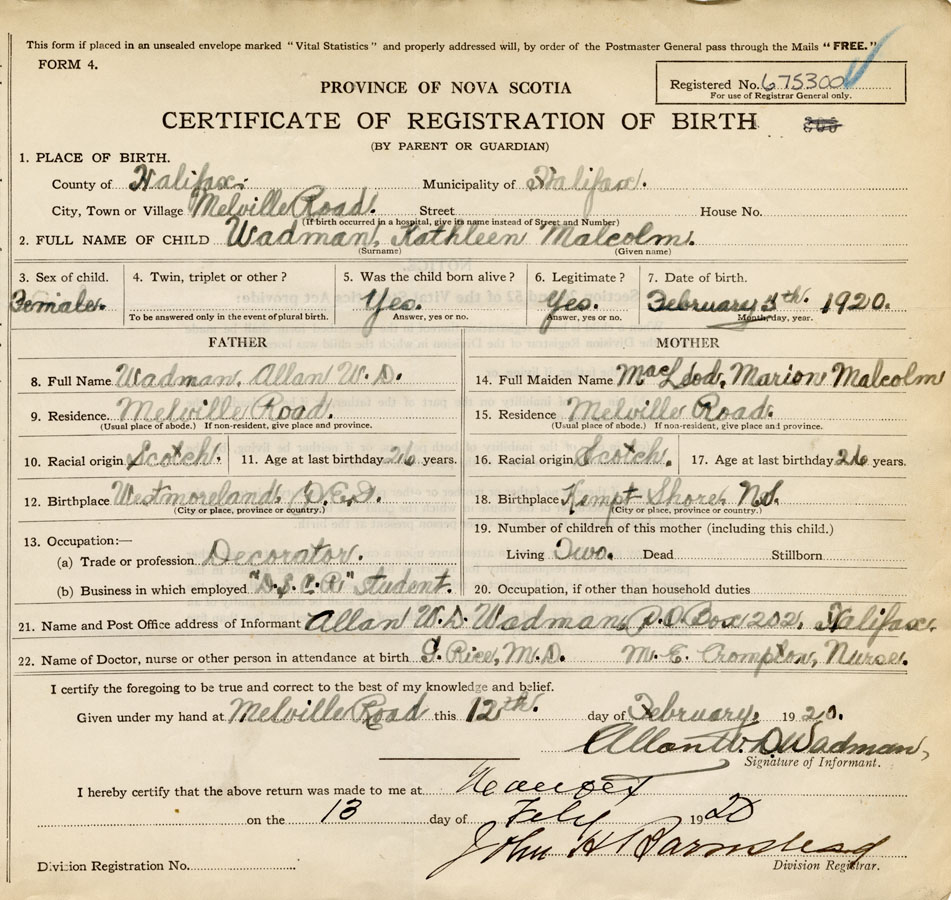 This form if placed in an unsealed envelope marked "Vital Statistics" and properly addressed will, by order of the Postmaster General pass through the Mails "FREE."
FORM 4.
Registered No. 675300
For use of Registrar General only.
PROVINCE OF NOVA SCOTIA
CERTIFICATE OF REGISTRATION OF BIRTH
(BY PARENT OR GUARDIAN)
1. PLACE OF BIRTH.
County of Halifax. Municipality of Halifax.
City, Town or Village Melville Road. Street House No.
(If birth occurred in a hospital, give its name instead of Street and Number)
2. FULL NAME OF CHILD Wadman, Kathleen Malcolm.
(Surname) (Given name)
3. Sex of child. 4. Twin, triplet or other? 5. Was the child born alive? 6. Legitimate? 7. Date of birth.
Female. Yes. Yes. February 5th. 1920.
To be answered only in the event of plural birth. Answer, yes or no. Answer, yes or no. Month, day, year.
FATHER MOTHER
8. Full Name Wadman, Allan W.D. 14. Full Maiden Name MacLeod, Marion Malcolm
9. Residence. Melville Road. 15. Residence Melville Road.
(Usual place of abode.) If non-resident, give place and province. (Usual place of abode.) If non-resident, give place and province.
10. Racial origin Scotch. 11. Age at last birthday 26 years. 16. Racial origin Scotch. 17. Age at last birthday 26 years.
12. Birthplace Westmoreland, P.E.I. 18. Birthplace Kempt Shore, N.S.
(City or place, province or country.) (City or place, province or country.)
13. Occupation:— 19. Number of children of this mother (including this child.)
(a) Trade or profession Decorator. Living Two. Dead Stillborn
(b) Business in which employed "D.S.C.R." Student. 20. Occupation, if other than household duties
21. Name and Post Office address of Informant Allan W.D. Wadman, P.O. Box 202, Halifax.
22. Name of Doctor, nurse or other person in attendance at birth G. Rice, M.D. M.E. Crompton, Nurse.
I certify the foregoing to be true and correct to the best of my knowledge and belief.
Given under my hand at Melville Road this 12th. day of February, 1920.
Allan W. D Wadman,
Signature of Informant.
I hereby certify that the above return was made to me at
on the 13 day of Feby 1920
John H Barnstead
Division Registration No. Division Registrar.